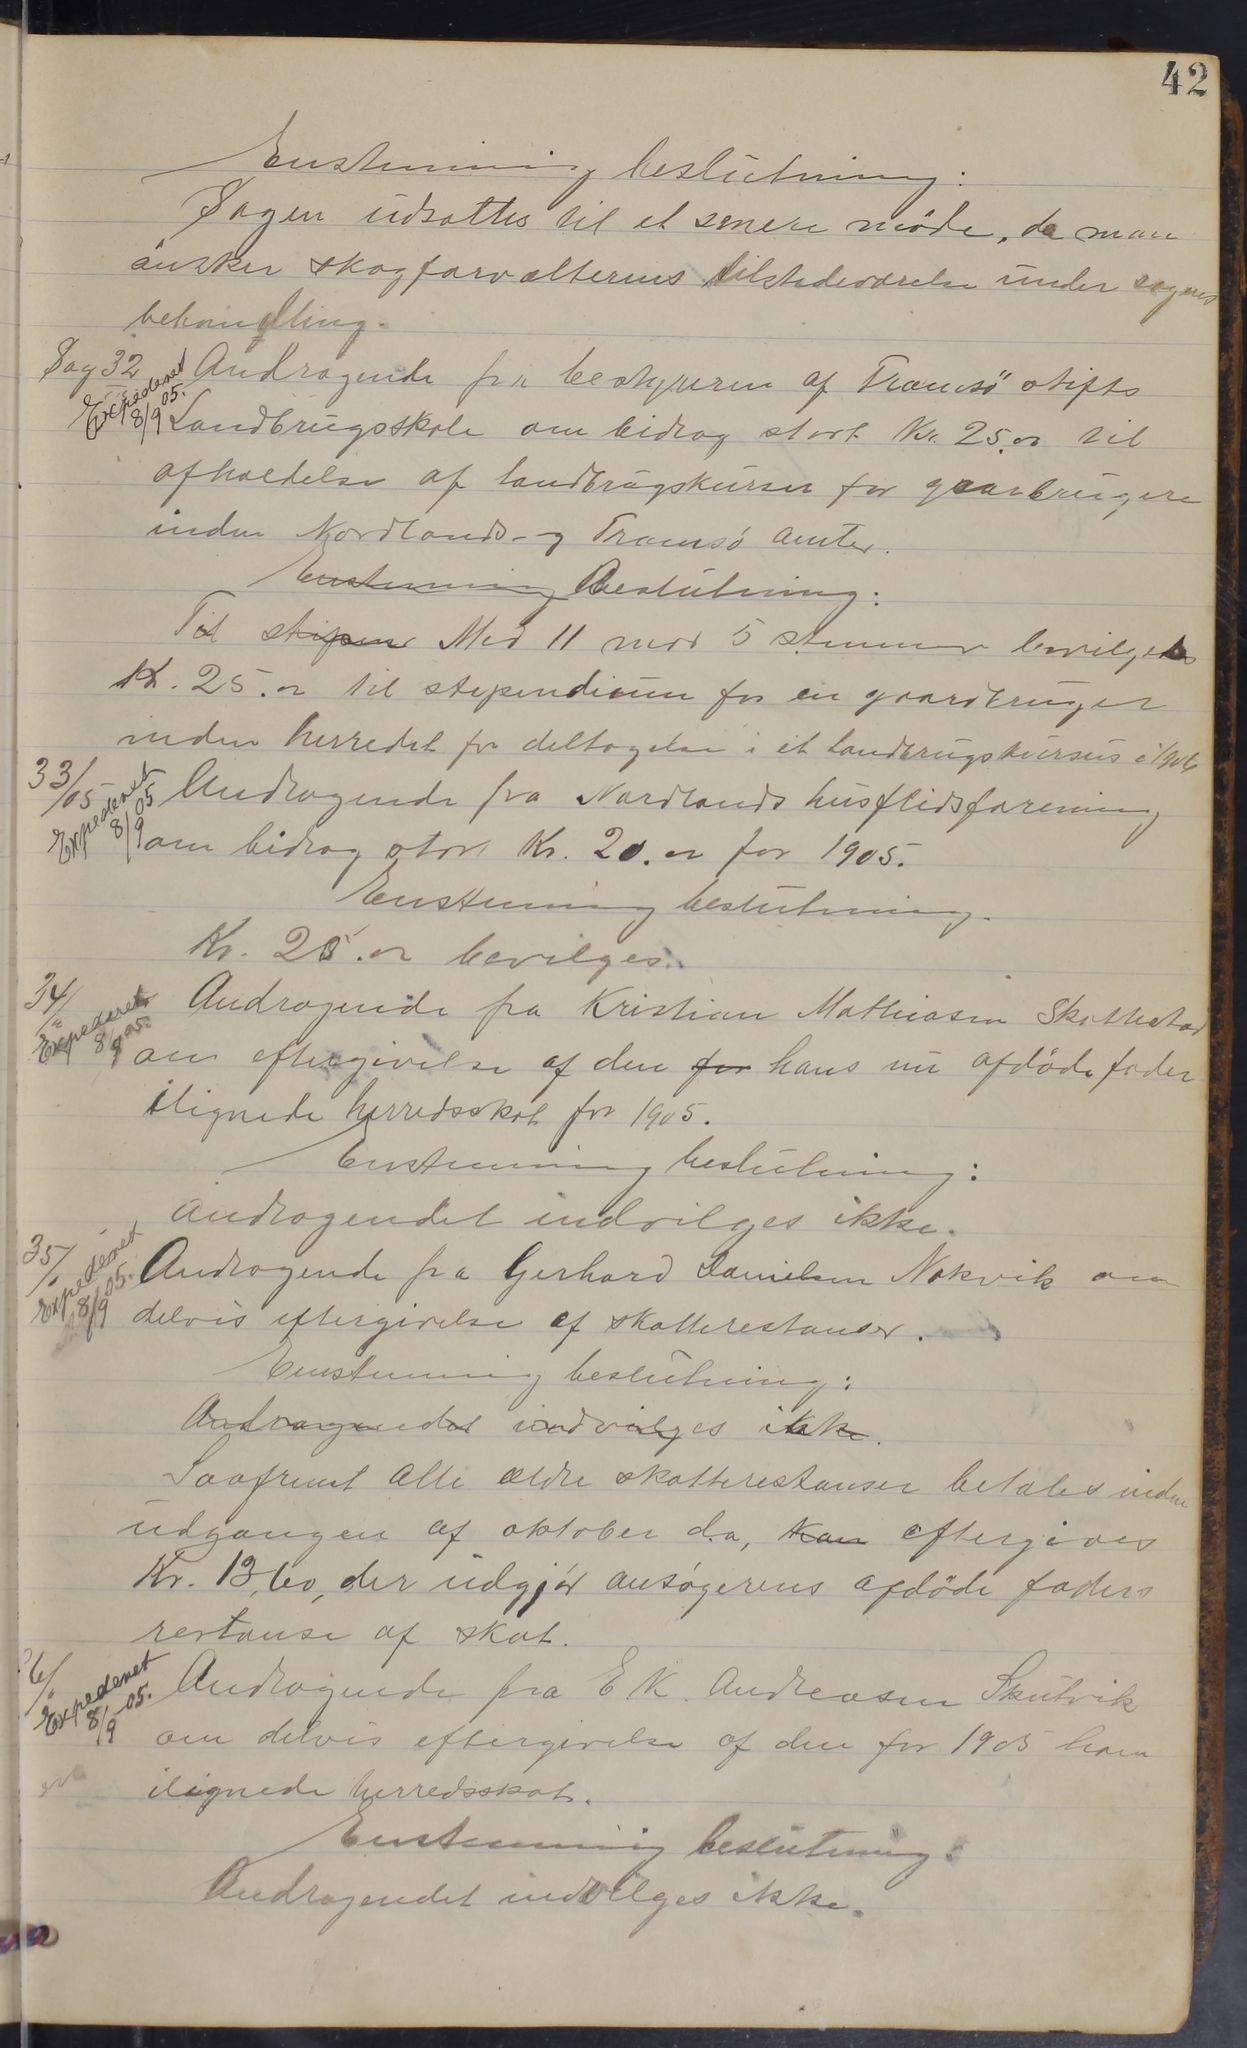 42
Enstemmig beslutning:
Sagen udsættes til et senere møde, da man
ønsker skogforvalterens tilstedeværelse under sagens
behandling.
Sag 32 Andragende fra bestyreren af Tromsö stifts
Expederet 8/9 05.
Landbrugsskole om bidrag stort Kr. 25.oo til
afholdelse af landbrugskurser for gaardbrugere
inden Nordlands- og Tromsö amter.
Enstemmig Beslutning:
Til stipen Med 11 mod 5 stemmer bevilges
Kr. 25.oo til stipendium for en gaardbruger
inden herredet for deltagelse i et landbrugskursus i 1906
33/05 Andragende fra Nordlands husflidsforening
Expederet 8/9 05
om bidrag stort Kr. 20.oo for 1905.
Enstemmig beslutning.
Kr. 25.oo bevilges.
34/" Andragende fra Kristian Mathiasen Skottestad
Expederet 8/9 05.
om eftergivelse af den for hans nu afdöde fader
ilignede herredsskat for 1905.
Enstemmig beslutning:
Andragendet indvilges ikke.
35/" Andragende fra Gerhard Danielsen Nokvik om
Expederet 8/9 05.
delvis eftergivelse af skatterestanser.
Enstemmig beslutning:
Andragendet indvilges ikke.
Saafremt alle ældre skatterestanser betales inden
udgangen af oktober d.a, kan eftergives
Kr. 13,60, der udgjør ansøgerens afdöde faders
restanse af skat.
36/" Andragende fra E K. Andreasen Skutvik
Expederet 8/9 05.
om delvis eftergivelse af den for 1905 ham
ilignede herredsskat.
Enstemmig beslutning:
Andragendet indvilges ikke.